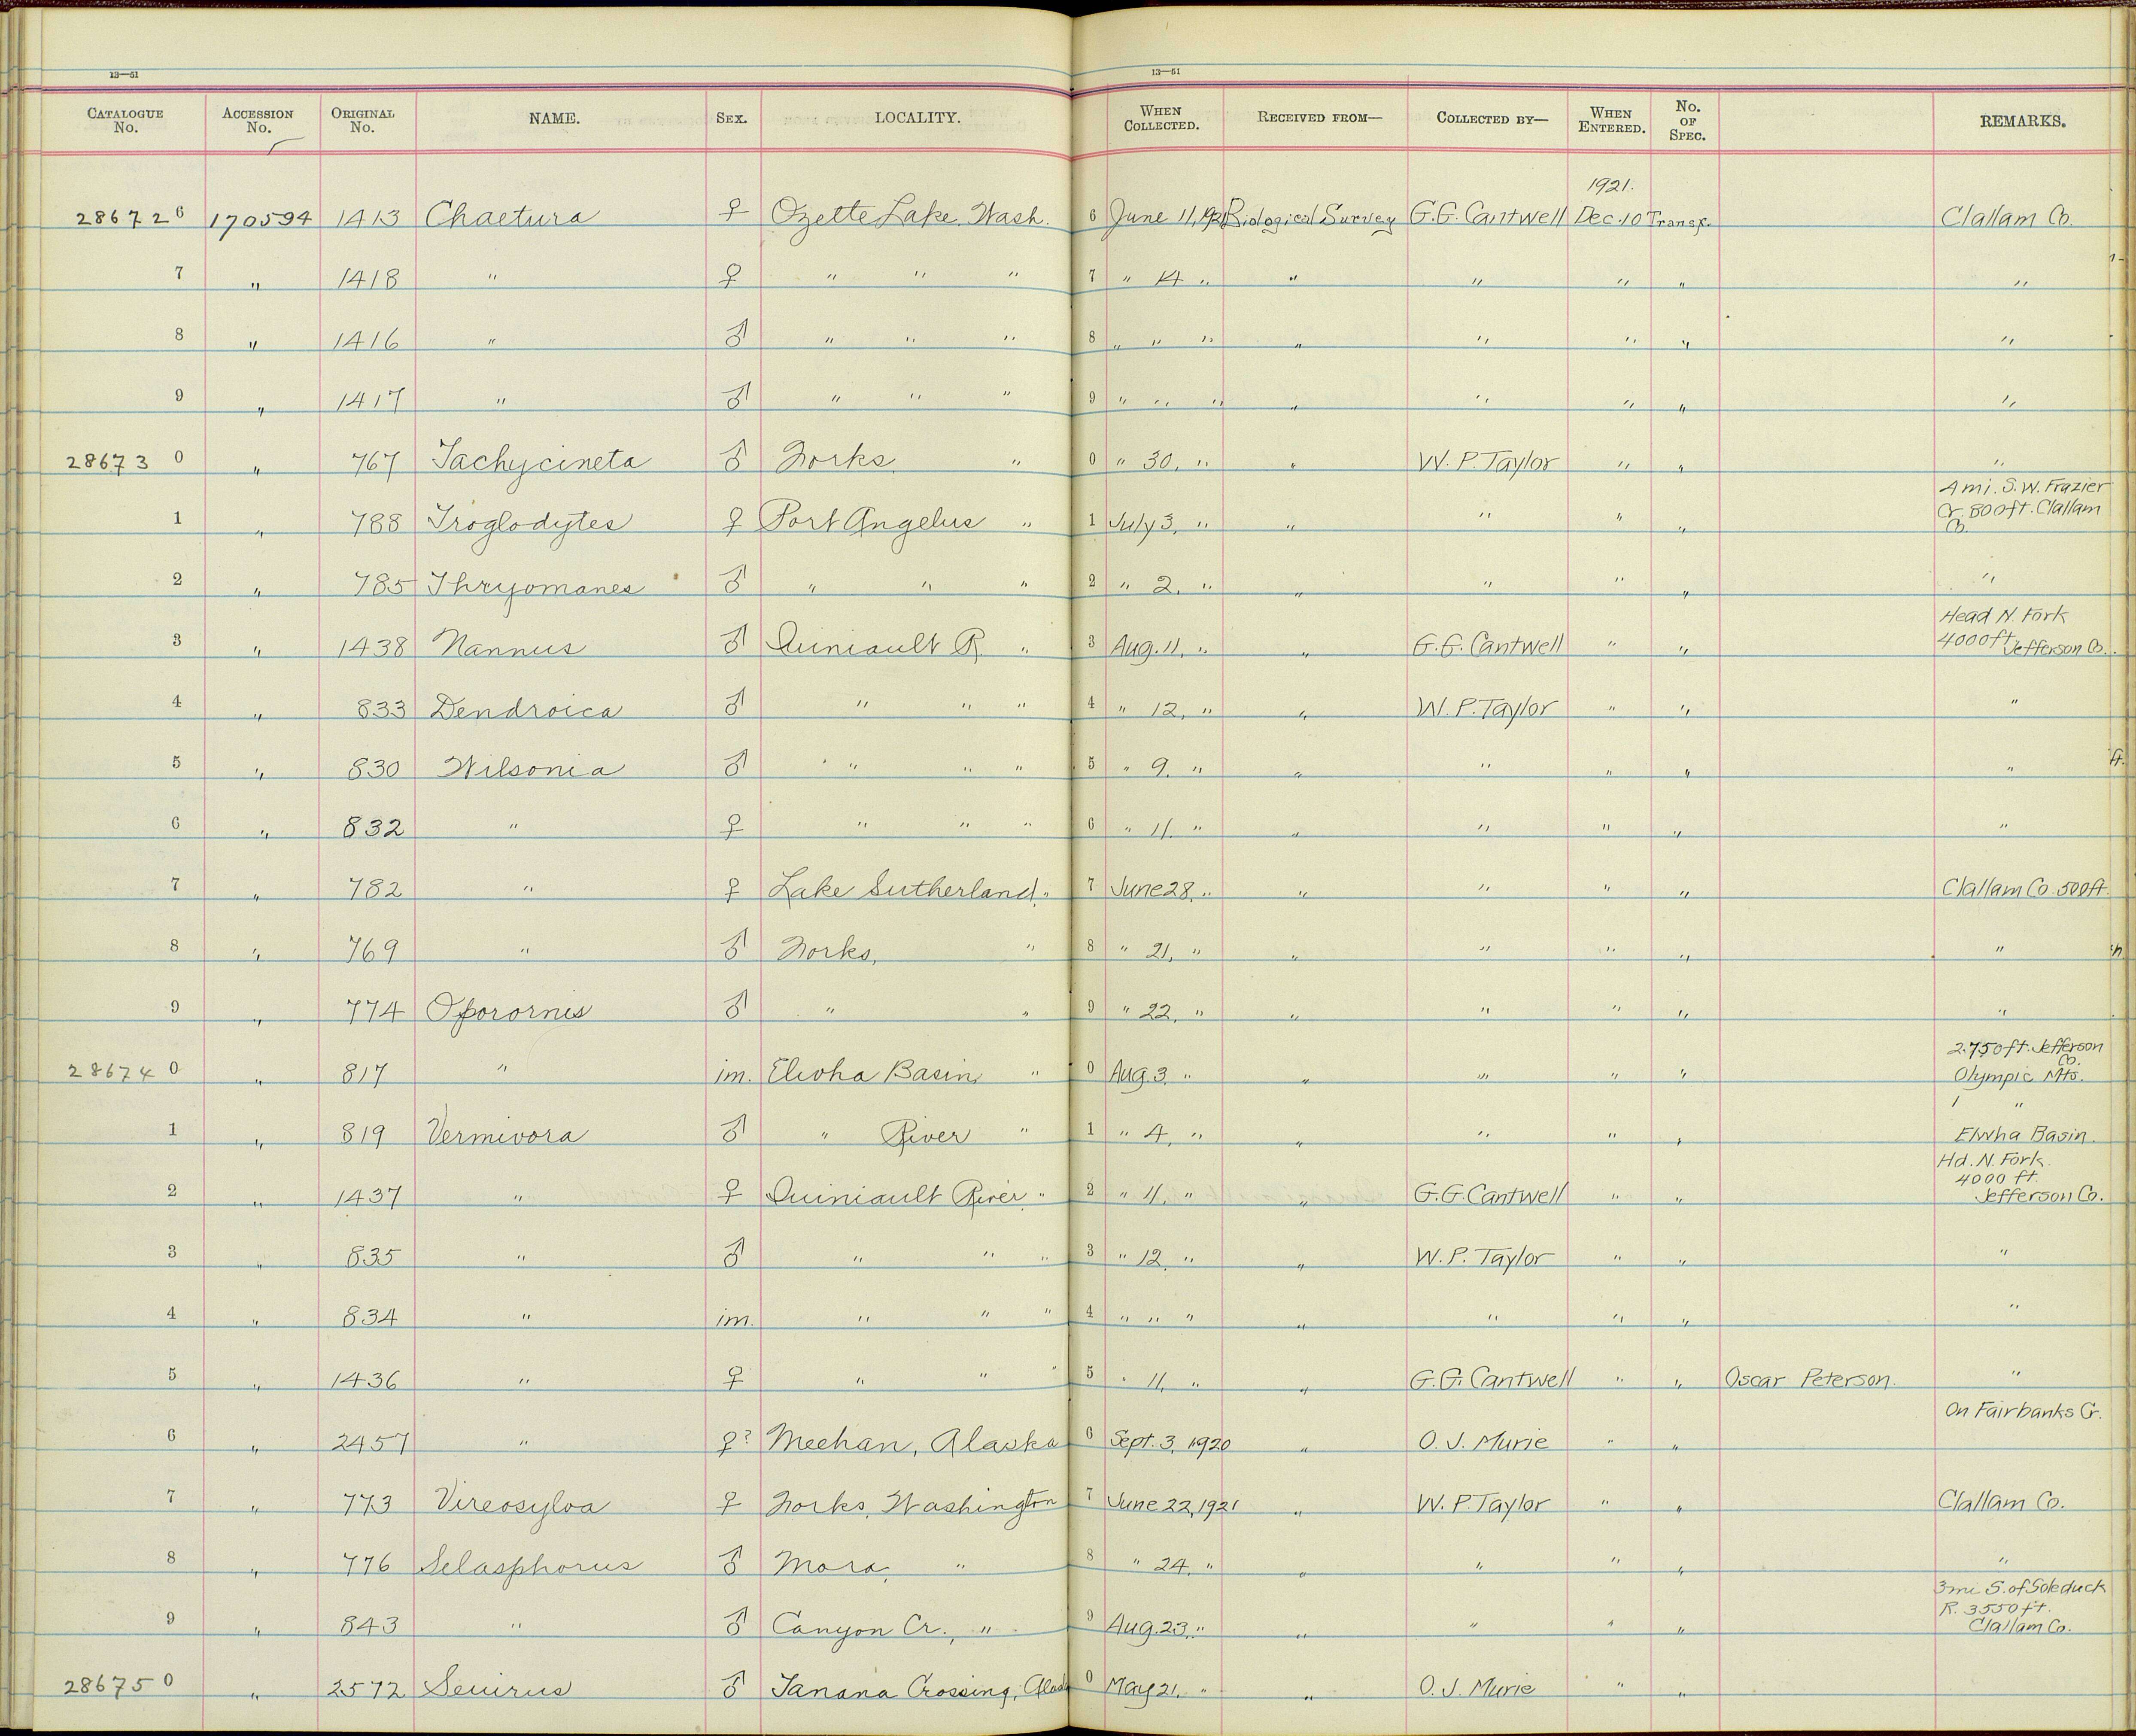 13—51 13—51
CATALOGUE No. ACCESSION No. ORIGINAL No. NAME. SEX. LOCALITY. WHEN COLLECTED. RECEIVED FROM— COLLECTED BY— WHEN ENTERED. No. OF SPEC. REMARKS.
1921.
286726 170594 1413 Chaetura ♀ Ozette Lake, Wash. 6 June 11, 1921 Biological Survey G.G. Cantwell Dec. 10 Transf. Clallam Co.
7 " 1418 " ♀ " " " 7 " 14 " " " " " "
8 " 1416 " ♂ " " " 8 " " " " " " " "
9 " 1417 " ♂ " " " 9 " " " " " " " "
286730 " 767 Tachycineta ♂ Forks, " 0 " 30, " " W. P. Taylor " " "
4 mi. S.W. Frazier
1 " 788 Troglodytes ♀ Port Angelus " 1 July 3, " " " " " Cr. 800 ft. Clallam
Co.
2 " 785 Thryomanes ♂ " " " 2 " 2, " " " " " "
Head N. Fork
3 " 1438 Nannus ♂ Quiniault R. " 3 Aug. 11, " " G.G. Cantwell " " 4000 ft. Jefferson Co.
4 " 833 Dendroica ♂ " " " 4 " 12, " " W. P. Taylor " " "
5 " 830 Wilsonia ♂ " " " 5 " 9, " " " " " "
6 " 832 " ♀ " " " 6 " 11. " " " " " "
7 " 782 " ♀ Lake Sutherland, " 7 June 28, " " " " " Clallam Co. 500 ft.
8 " 769 " ♂ Forks, " 8 " 21, " " " " " "
9 " 774 Oporornis ♂ " " 9 " 22, " " " " " "
2750 ft. Jefferson Co.
286740 " 817 " im. Elwha Basin, " 0 Aug. 3, " " " " " Olympic Mts.
"
1 " 819 Vermivora ♂ " River " 1 " 4, " " " " " Elwha Basin.
Hd. N. Fork.
4000 ft.
2 " 1437 " ♀ Quiniault River, " 2 " 11, " " G.G. Cantwell " " Jefferson Co.
3 " 835 " ♂ " " " 3 " 12, " " W. P. Taylor " " "
4 " 834 " im. " " " 4 " " " " " " " "
5 " 1436 " ♀ " " " 5 " 11, " " G.G. Cantwell " " Oscar Peterson. "
On Fairbanks Cr.
6 " 2457 " ♀? Meehan, Alaska 6 Sept. 3, 1920 " O. J. Murie " "
7 " 773 Vireosylva ♀ Forks, Washington 7 June 22, 1921 " W. P. Taylor " " Clallam Co.
8 " 776 Selasphorus ♂ Mora, " 8 " 24, " " " " " "
3 mi S. of Soleduck
R. 3550 ft.
9 " 843 " ♂ Canyon Cr., " 9 Aug. 23, " " " " " Clallam Co.
286750 " 2572 Seuirus ♂ Tanana Crossing, Alaska 0 May 21, " " O. J. Murie " "